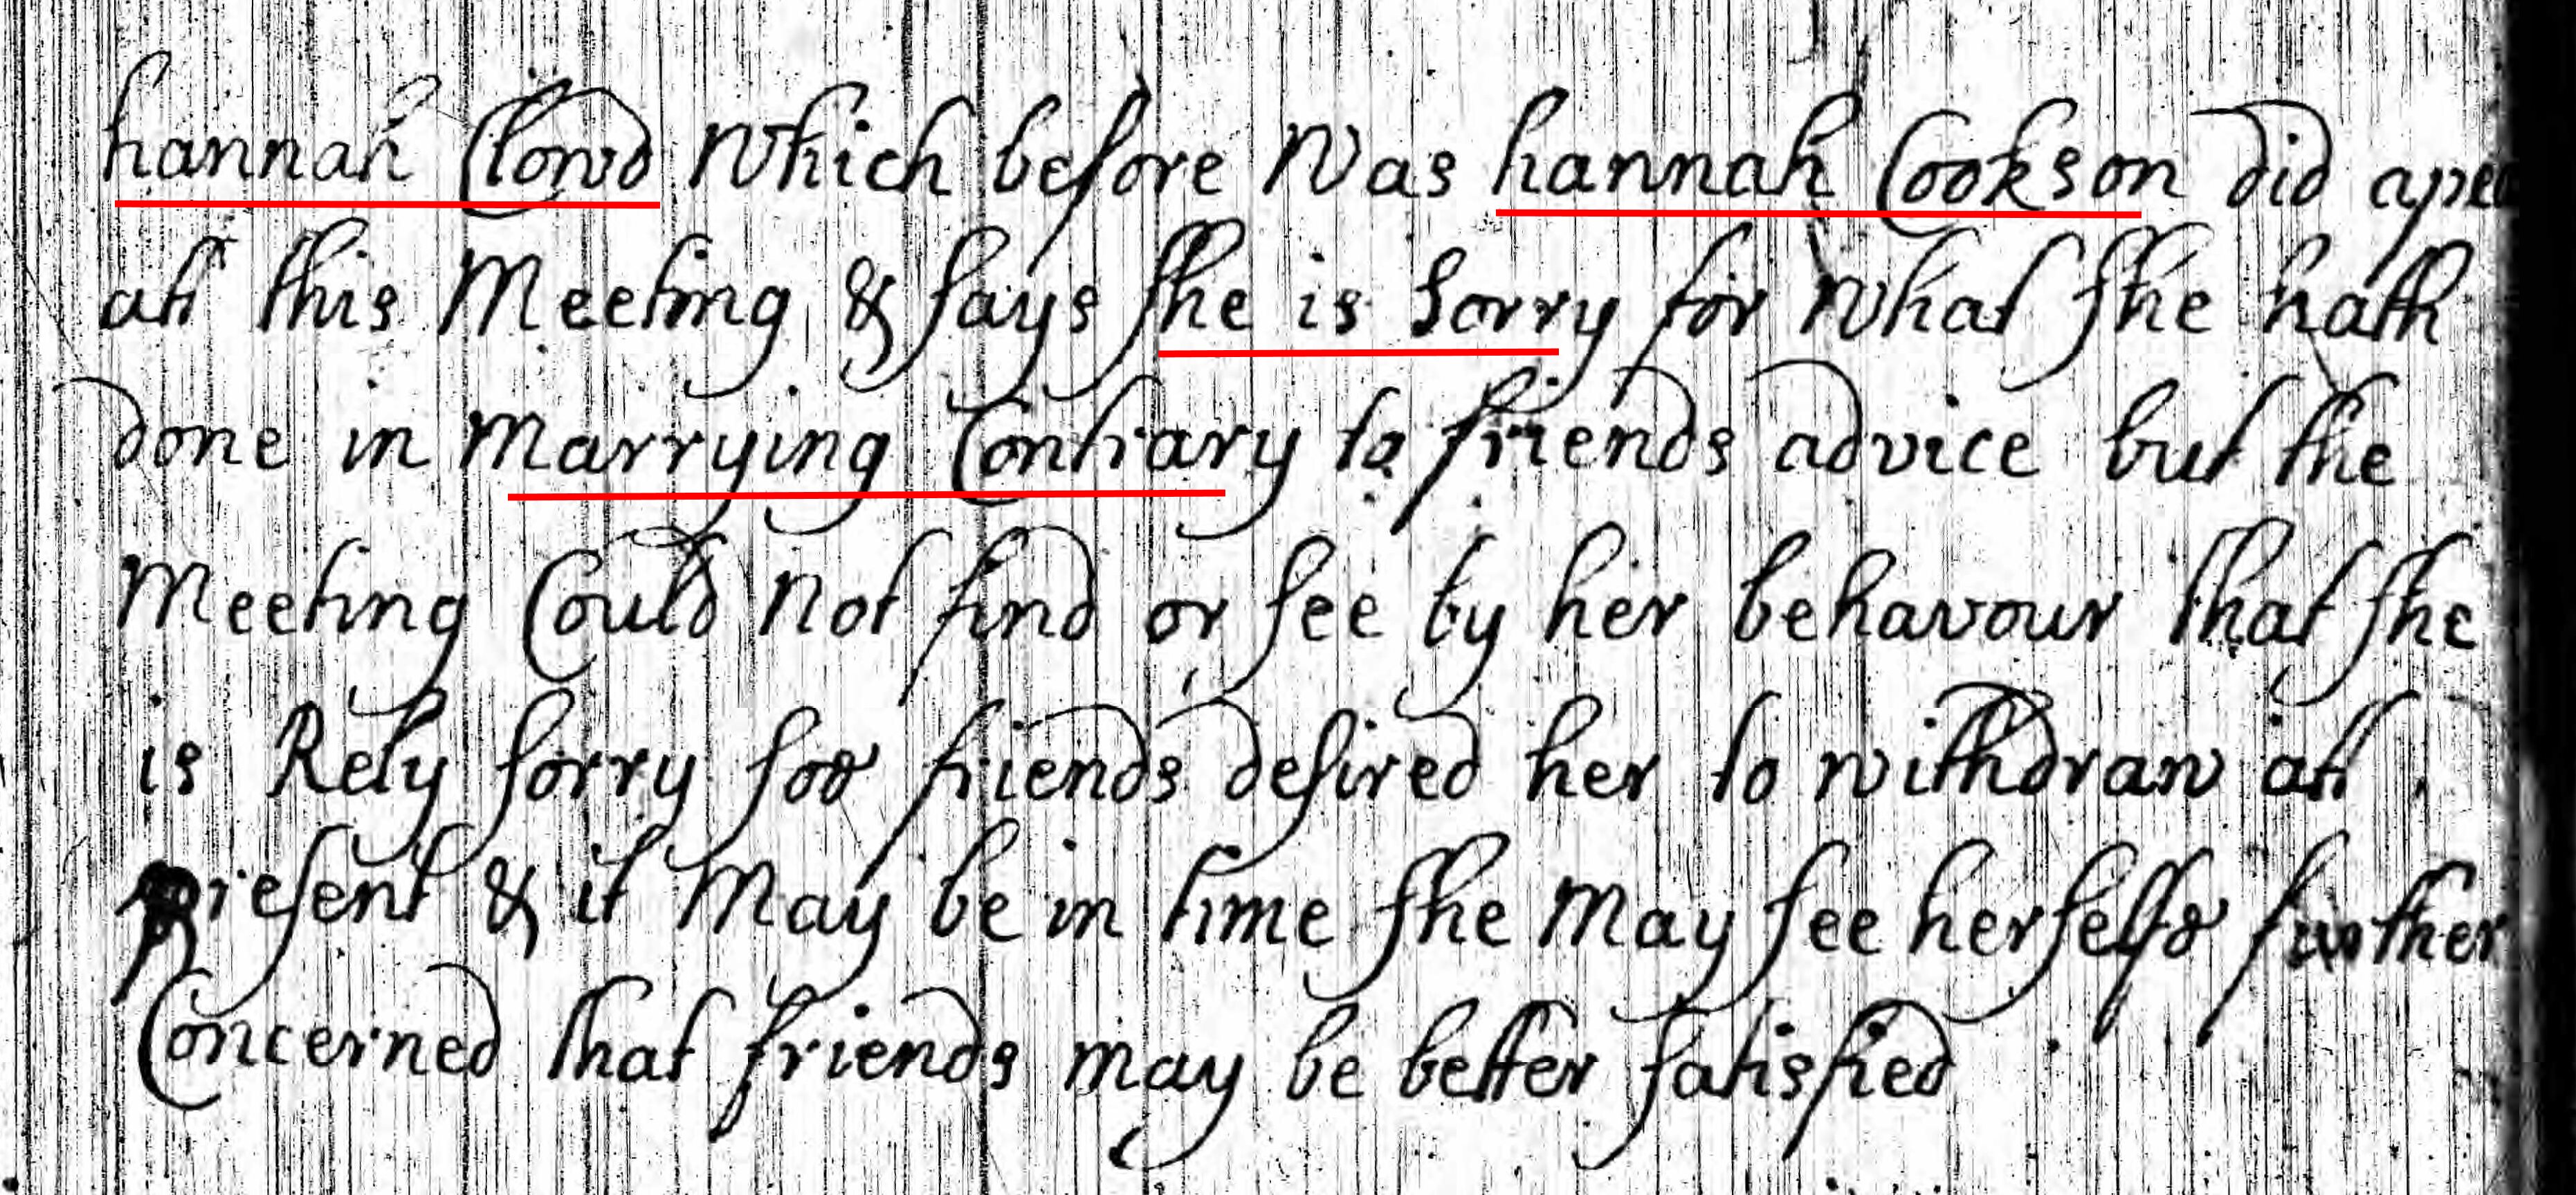 hannah Clowd Which before Was hannah Cookson did apea
att this Meeting & says she is Sorry for what she hath
done in Marrying Contrary to friends advice but the
Meeting Could Not find or see by her behavour that she
is Rely sorry soo friends desired her to withdraw att
present & it May be in time she May see herselfe further
Concerned that friends may be better satisfied